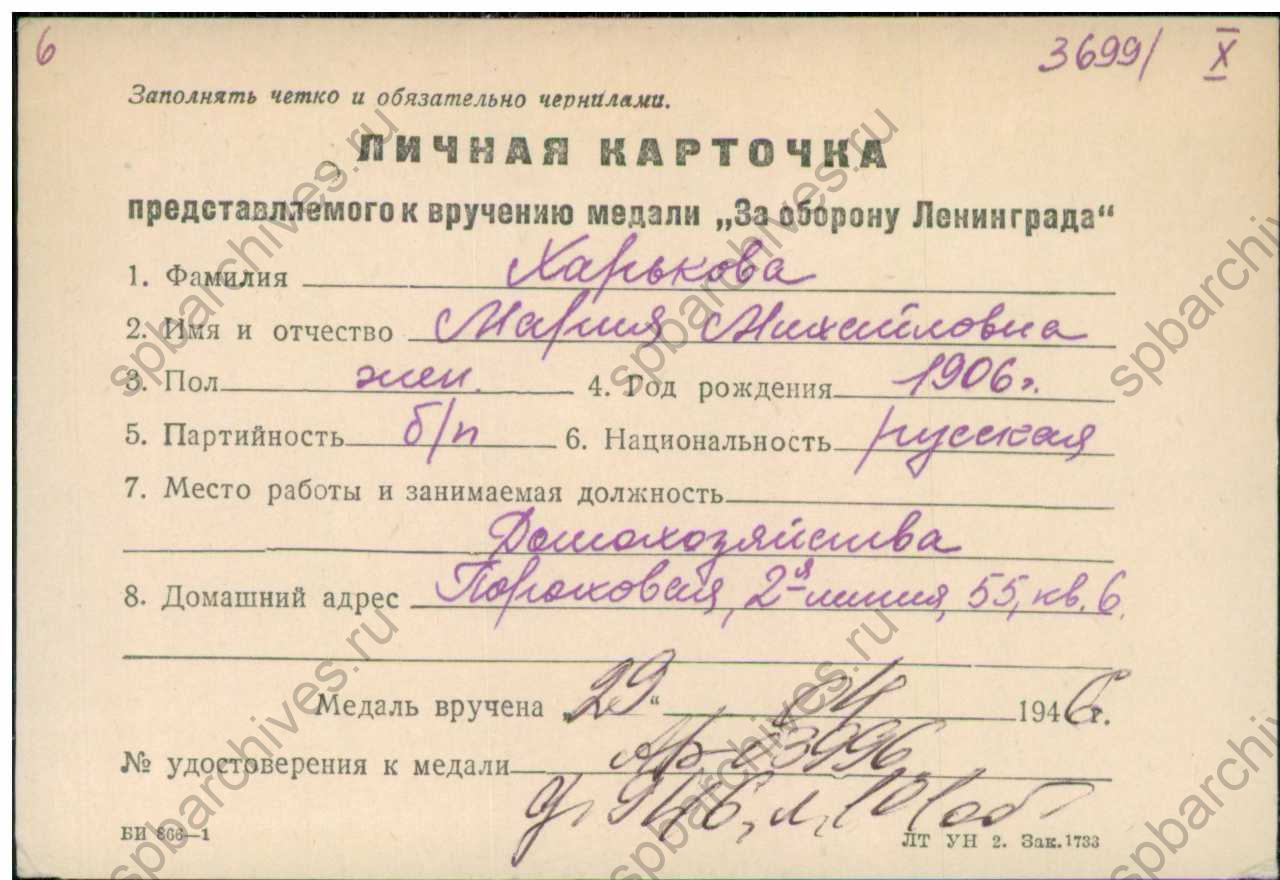 6 3699/ X
Заполнять четко и обязательно чернилами.
ЛИЧНАЯ КАРТОЧКА
представляемого к вручению медали „За оборону Ленинграда“
1. Фамилия Харькова
2. Имя и отчество Мария Михайловна
3. Пол жен. 4. Год рождения 1906г.
5. Партийность б/п 6. Национальность русская
7. Место работы и занимаемая должность
Домохозяйства
8. Домашний адрес Пороховая, 2-я линия, 55, кв. 6.
Медаль вручена „29“ 04 1946г.
№ удостоверения к медали 03996
д. 946, л. 101об
БИ 866—1 ЛТ УН 2. Зак. 1733
spbarchives.ru